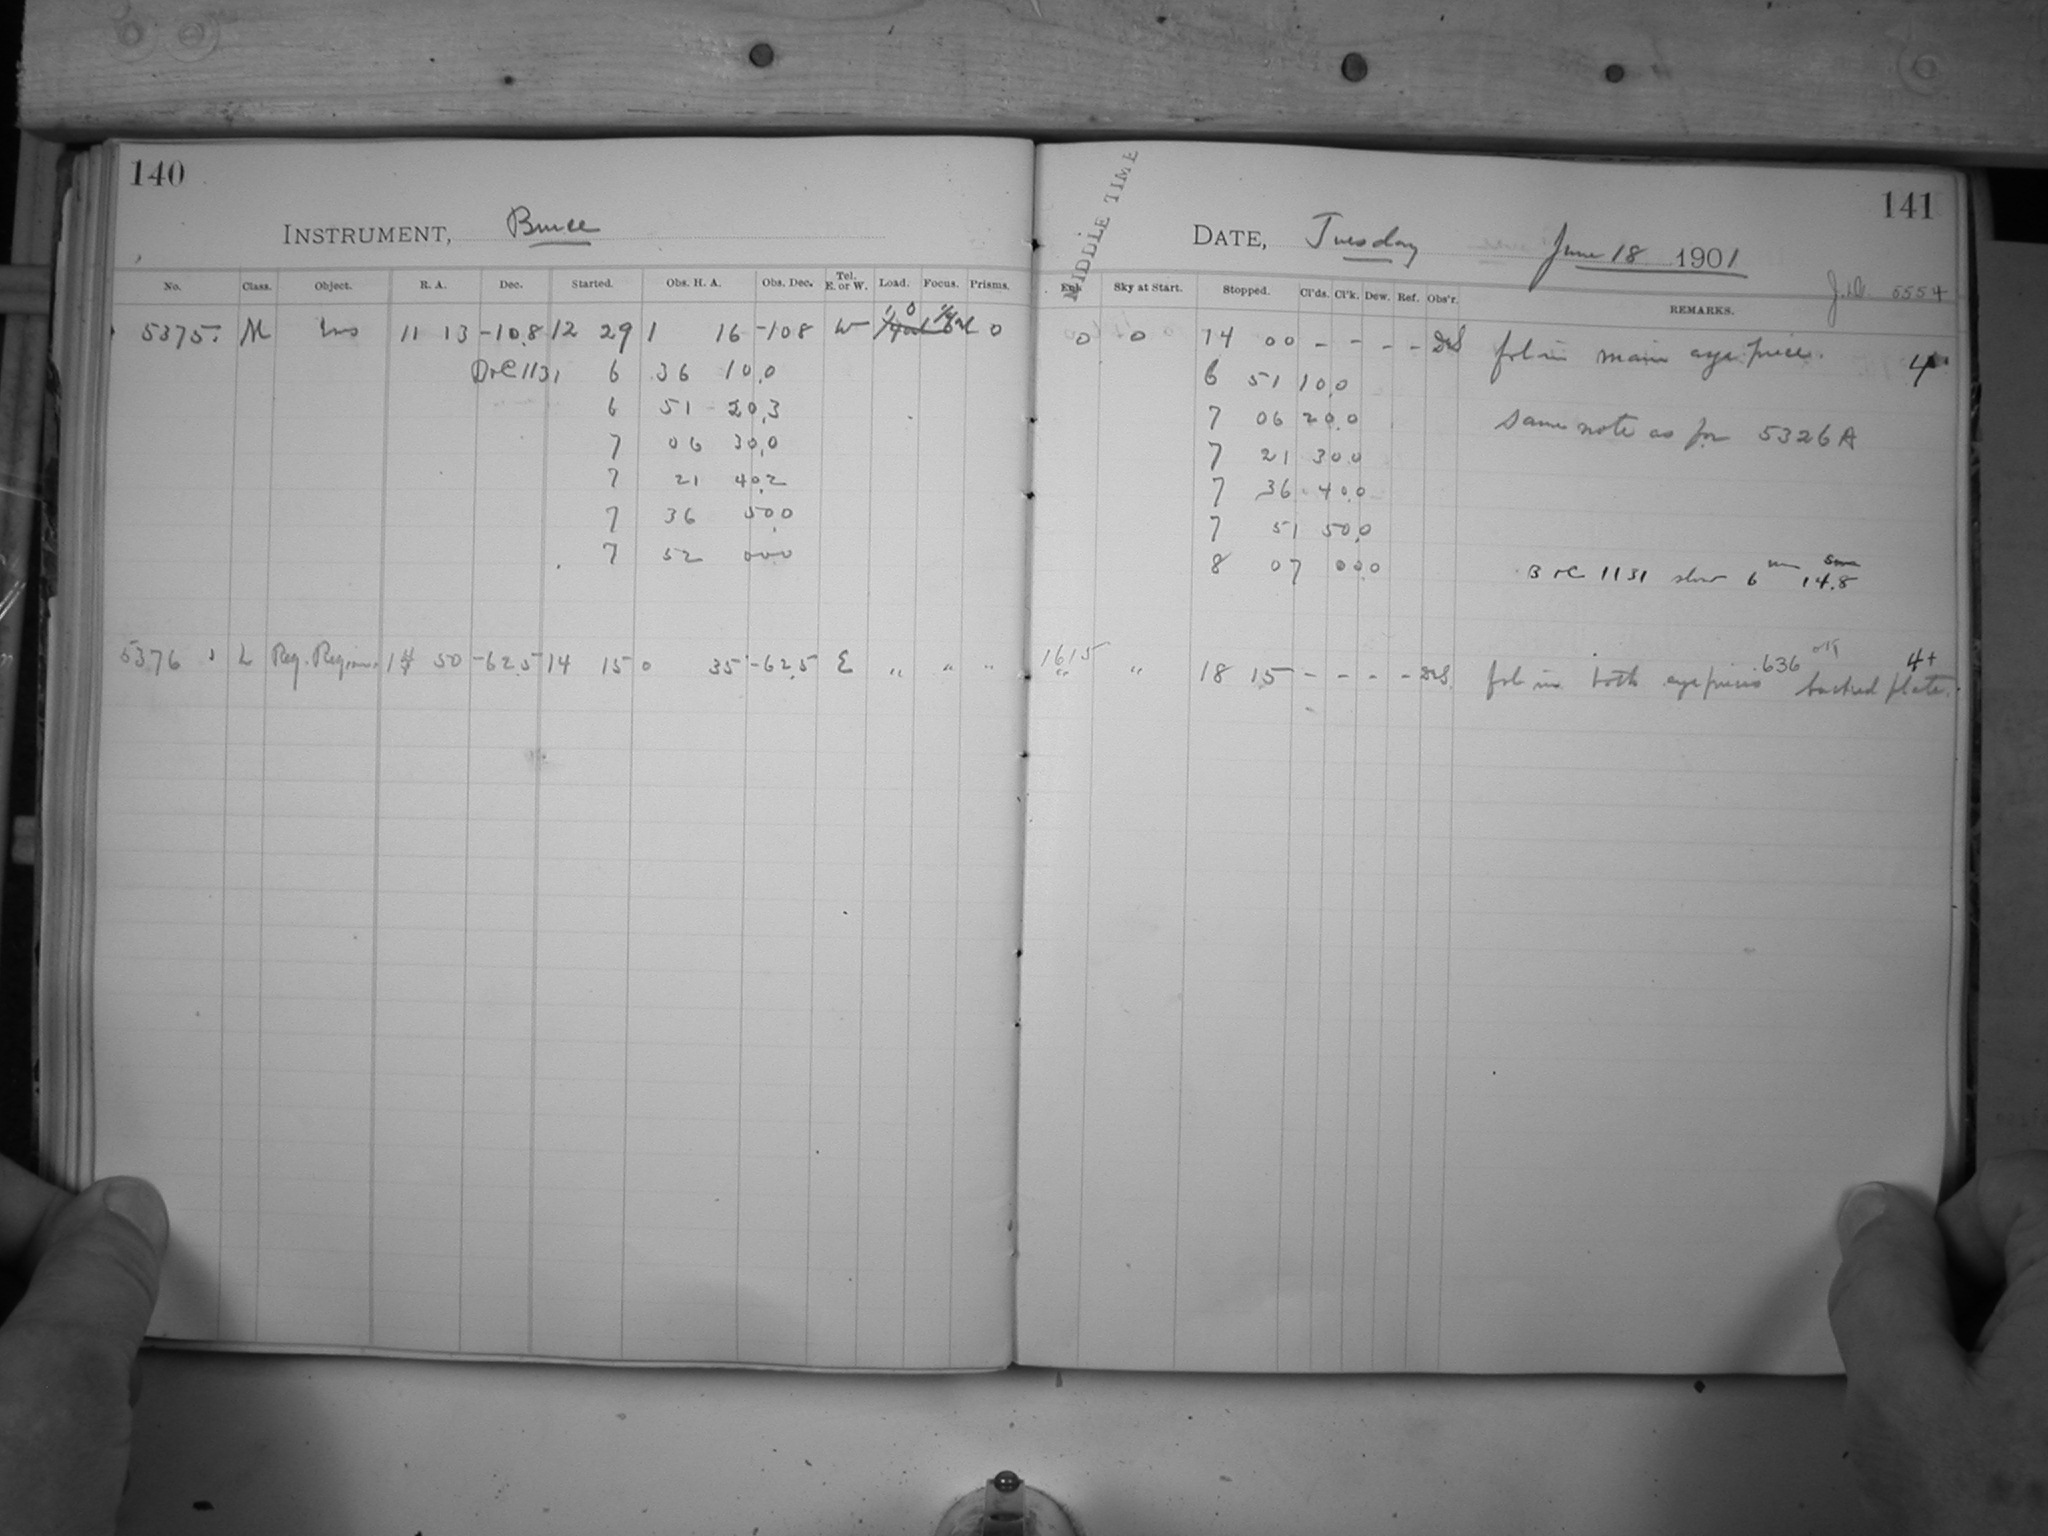 140
INSTRUMENT, Bruce
No. Class. Object. R. A. Dec. Started. Obs. H. A. Obs. Dec. Tel. E. or W. Load. Focus. Prisms.
5375. M Eros 11 13 -10.8 12 29 1 16 -10.8 W 0
1131 6 36 10.0
6 51 20.3
7 06 30.0
7 21 40.2
7 36 50.0
7 52 00.0
5376 L Reg. 50 -62.5 14 15 0 35 -62.5 E " " "
MIDDLE TIME
141
DATE, Tuesday June 18 1901
J.D. 5554
Sky at Start. Stopped. Cl'ds. Cl'k. Dew. Ref. Obs'r. REMARKS.
0 0 14 00 - - - - fol in main eye piece. 4
6 51 10.0
7 06 20.0 Same note as for 5326 A
7 21 30.0
7 36 40.0
7 51 50.0
8 07 00.0 1131 slow 6 m 14.8
1615 " " 18 15 - - - - fol in both eyepieces 636 backed plate. 4+